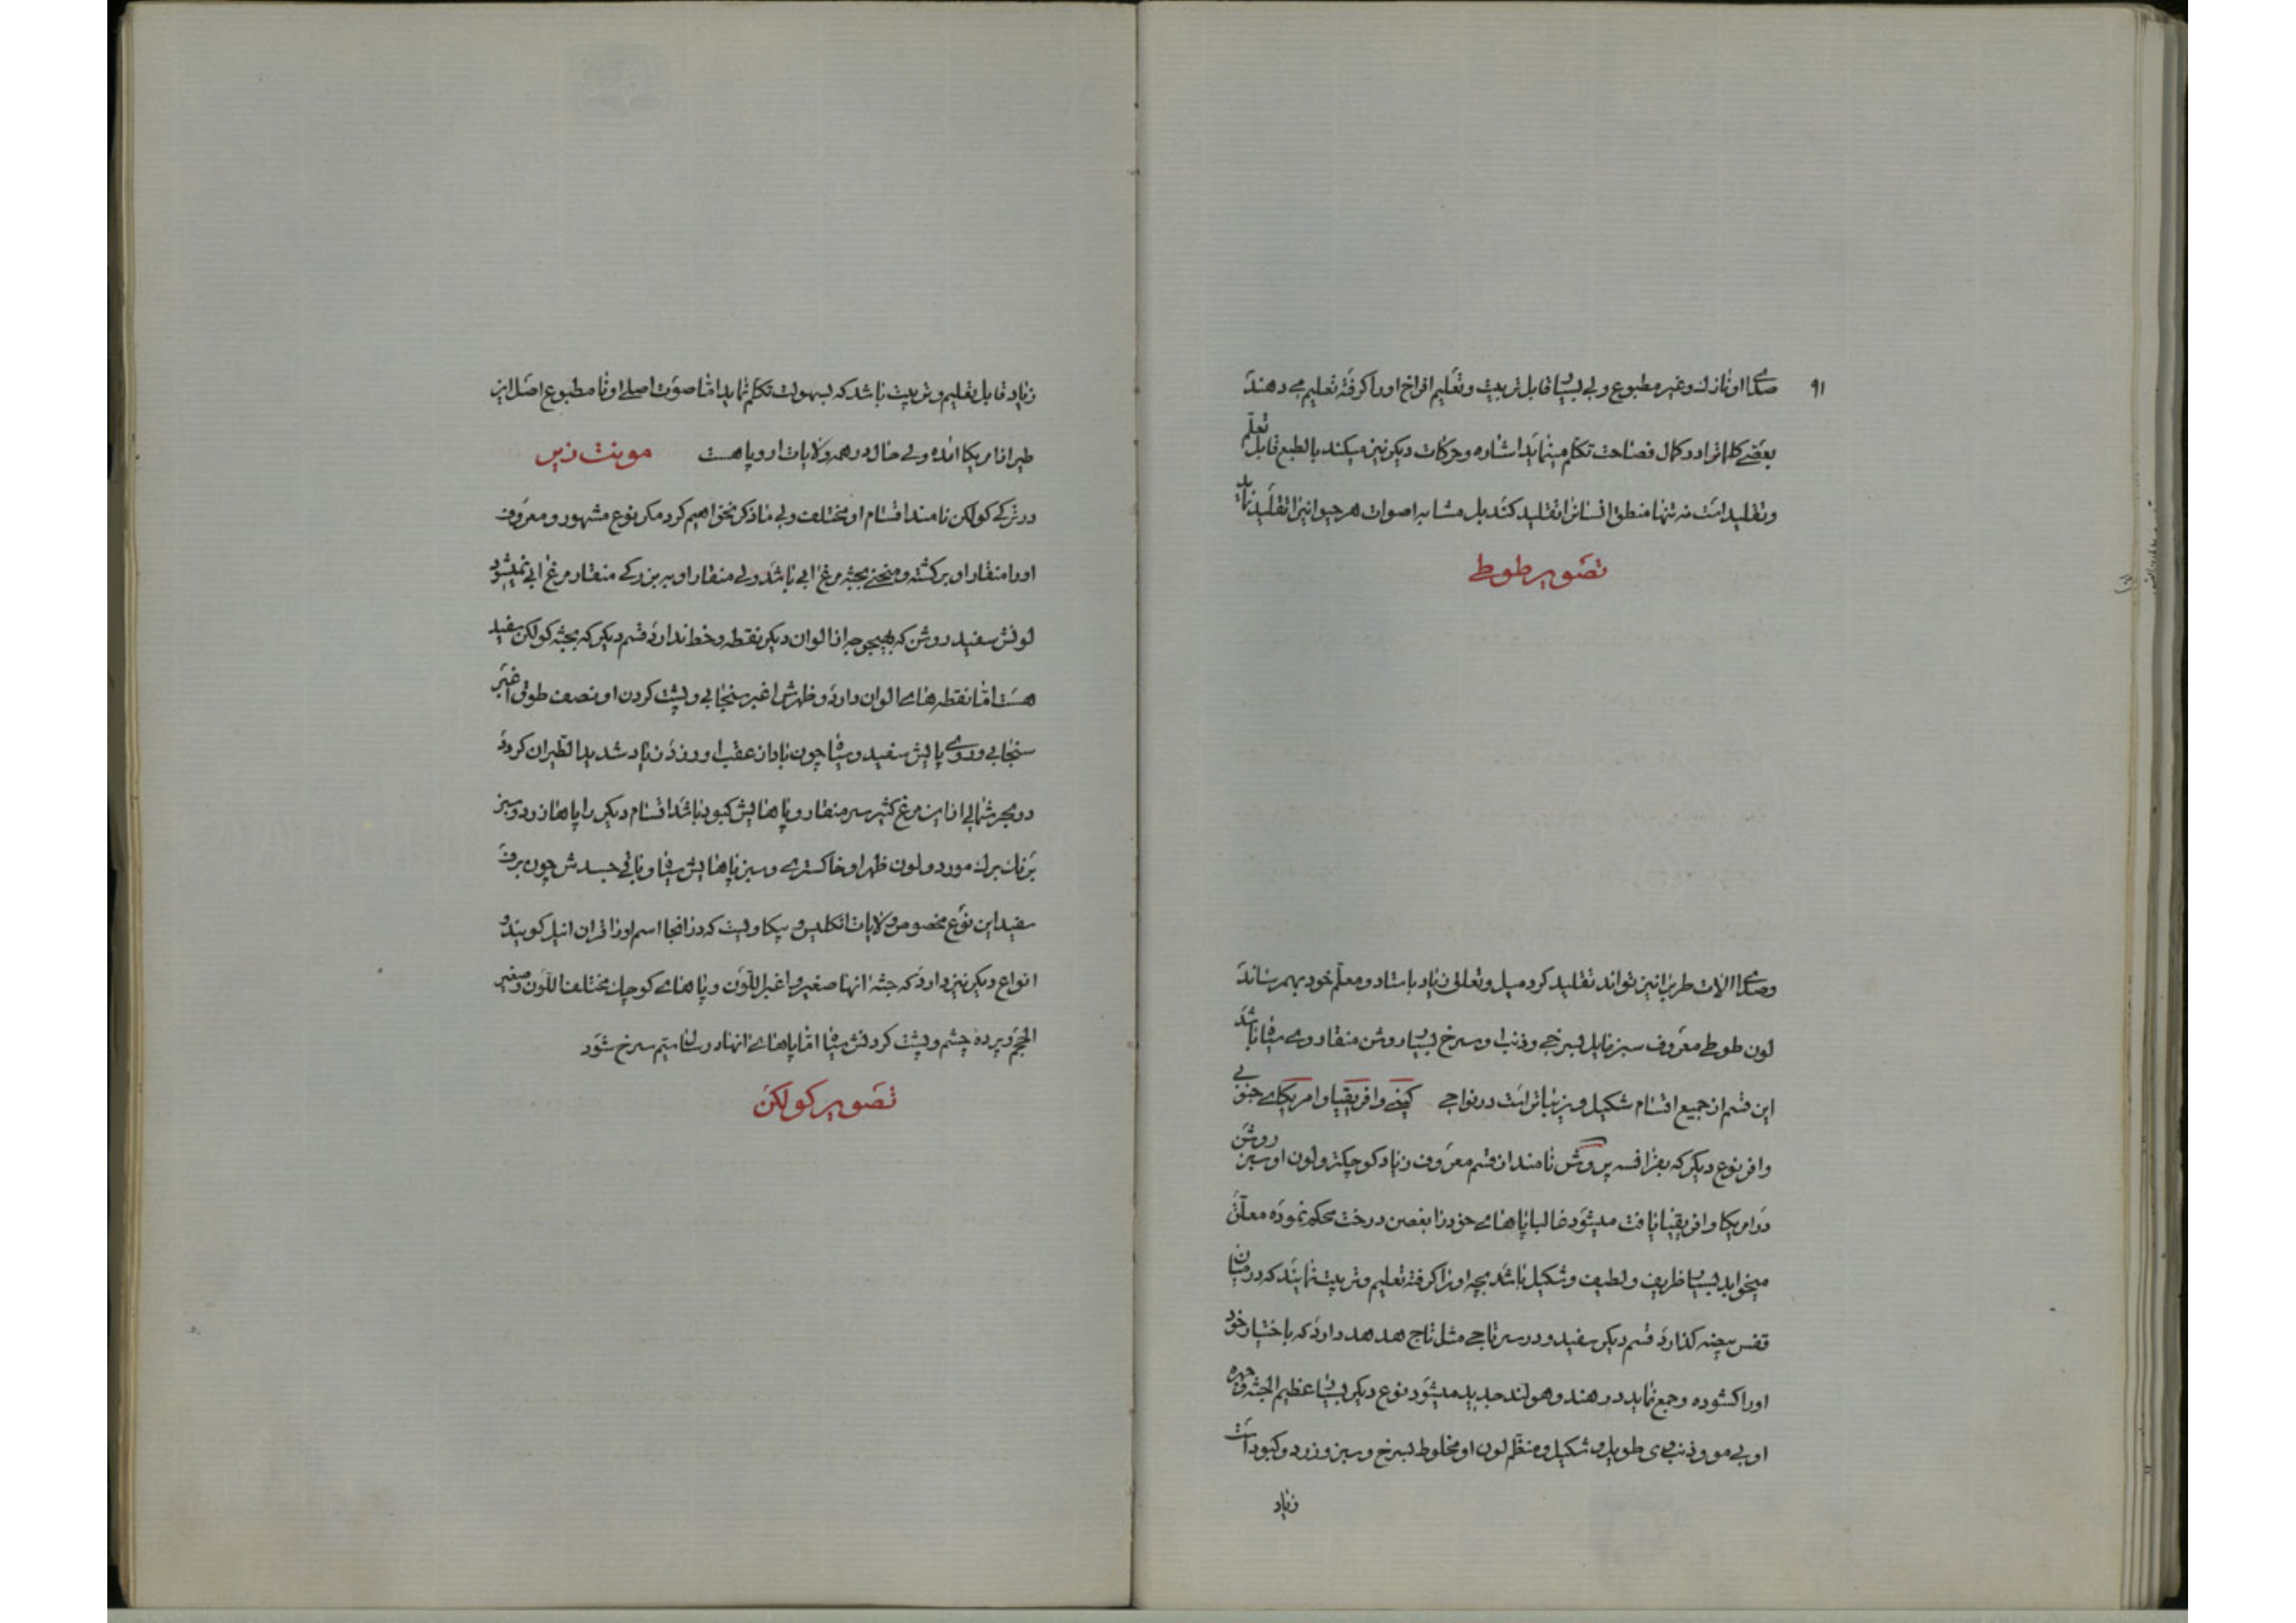 ۹۱
صدای او نازك و غیر مطبوع ولی بسیار قابل تربیت و تعلیم افراخ او را کرفته تعلیم می دهند
بعضی کلمات را در کمال فصاحت تکلم مینماید اشاره و حرکات دیکر نیز میکند بالطبع قابل تعلّم
و تقلید است نه تنها منطق انسانرا تقلید کند بل مشابه اصوات هر حیوانیرا تقلید نماید
تصویر طوطی
وصدای الات طرب را نیز تواند تقلید کرد میل و تعلق زیاد باستاد و معلّم خود بهم رساند
لون طوطی معروف سبز مایل بسرخی و ذنب او سرخ بسیار روشن منقار وی سیاه باشد
این قسم از جمیع اقسام شکیل و زیباتر است در نواحی کینی و افریقیا و امریکای جنوبی
وافر نوع دیکر که بفرانسه پروش نامند از قسم معروف زیاد کوچکتر و لون او سبز روشن
در امریکا و افریقیا یافت میشود غالبا پاهای خود را بغصن درخت محکم نموده معلّق
میخوابد بسیار ظریف و لطیف و شکیل باشد بچه او را کرفته تعلیم و تربیت نمایند که در میان
قفس بیضه کذارد قسم دیکر سفید و در سر تاجی مثل تاج هدهد دارد که باختیار خود
اورا کشوده و جمع نماید در هند و هولند جدید میشود نوع دیکر بسیار عظیم الجثه و چهره
او بی مو و ذنب وی طویل و شکیل و منظّم لون او مخلوط بسرخ و سبز و زرد و کبود است
زیاد
زیاد قابل تعلیم و تربیت باشد که بسهولت تکلّم نماید امّا صوت اصلی او نا مطبوع اصل این
طیر از امریکا امده ولی حال در همه ولایات اروپا هست
در ترکی کولکن نامند اقسام او مختلف ولی ما ذکر نخواهیم کرد مکر نوع مشهور و معروف
اورا منقار او برکشته و منحنی بجثه مرغ ابی باشد ولی منقار او به بزرکی منقار مرغ ابی نمیشود
لونش سفید روشن که بهیچوجه از الوان دیکر نقطه و خط ندارد قسم دیکر که بجثه کولکن سفید
هست امّا نقطه های الوان دارد و ظهرش اغبر سنجابی و پشت کردن او نصف طوقی اغبر
سنجابی و روی پایش سفید و سیاه چون باد از عقب او وزد زیاد شدید الطیران کردد
در بحر شمالی از این مرغ کثیر سر منقار و پاهایش کبود باشد اقسام دیکر را پاها زرد و سبز
برنك برك مورد و لون ظهر او خاکستری و سبز پاهایش سیاه و باقی جسدش چون برف
سفید این نوع مخصوص ولایات انکلیس و بیکاولیت که در انجا اسم اورا قران انیل کویند و
انواع دیکر نیز دارد که جثه انها صغیر و اغبر اللّون و پاهای کوچك مختلف اللّون و صغیر
الحجم و پرده چشم و پشت کردنش سیاه امّا پاهای انها در سال سیم سرخ شود
تصویر کولکن